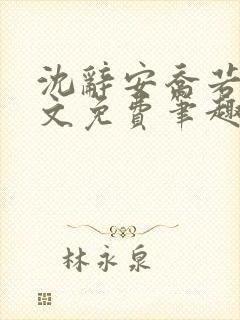 沈辭安喬若
文免費筆趣
林永泉